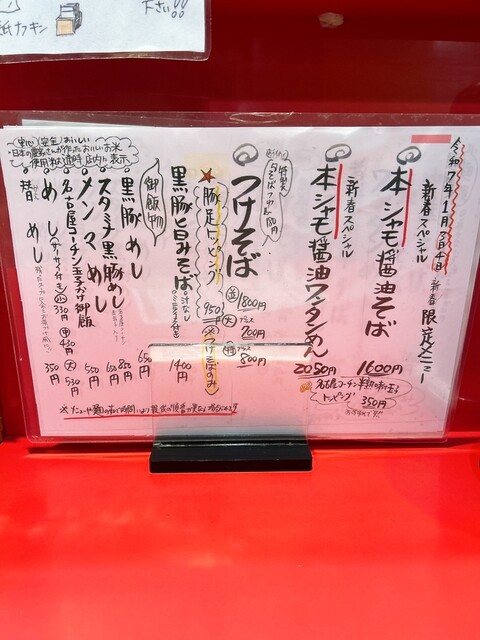 下さい!!
紙ナフキン
令和7年1月3日4日 新春限定メニュー
新春スペシャル
本シャモ醤油そば 1600円
新春スペシャル
本シャモ醤油ワンタンめん 2050円
名古屋コーチン半熟味付玉子
トッピング 350円
つけそば
並 1800円
大 プラス 200円
特 プラス 800円
豚足トッピング 950円 ※つけそばのみ
黒豚旨みそば 汁なし ミニライス付き 1400円
御飯物
黒豚めし 650円
スタミナ黒豚めし 850円
メンマめし 650円
名古屋コーチン玉子かけ御飯 550円
めし (ザーサイ付き) 小 330円 中 430円 大 530円
替めし 350円
安心 安全 おいしい
日本の農家さんが作ったおいしいお米
使用 店内に表示